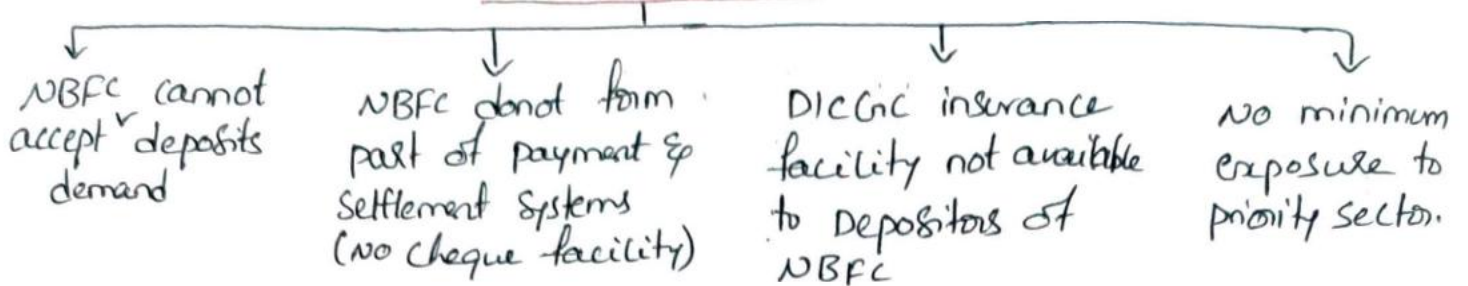 NBFC cannot
accept ˅ deposits
demand
NBFC donot form
part of payment &
Settlement Systems
(No cheque facility)
DICGC insurance
facility not available
to Depositors of
NBFC
No minimum
exposure to
priority sector.